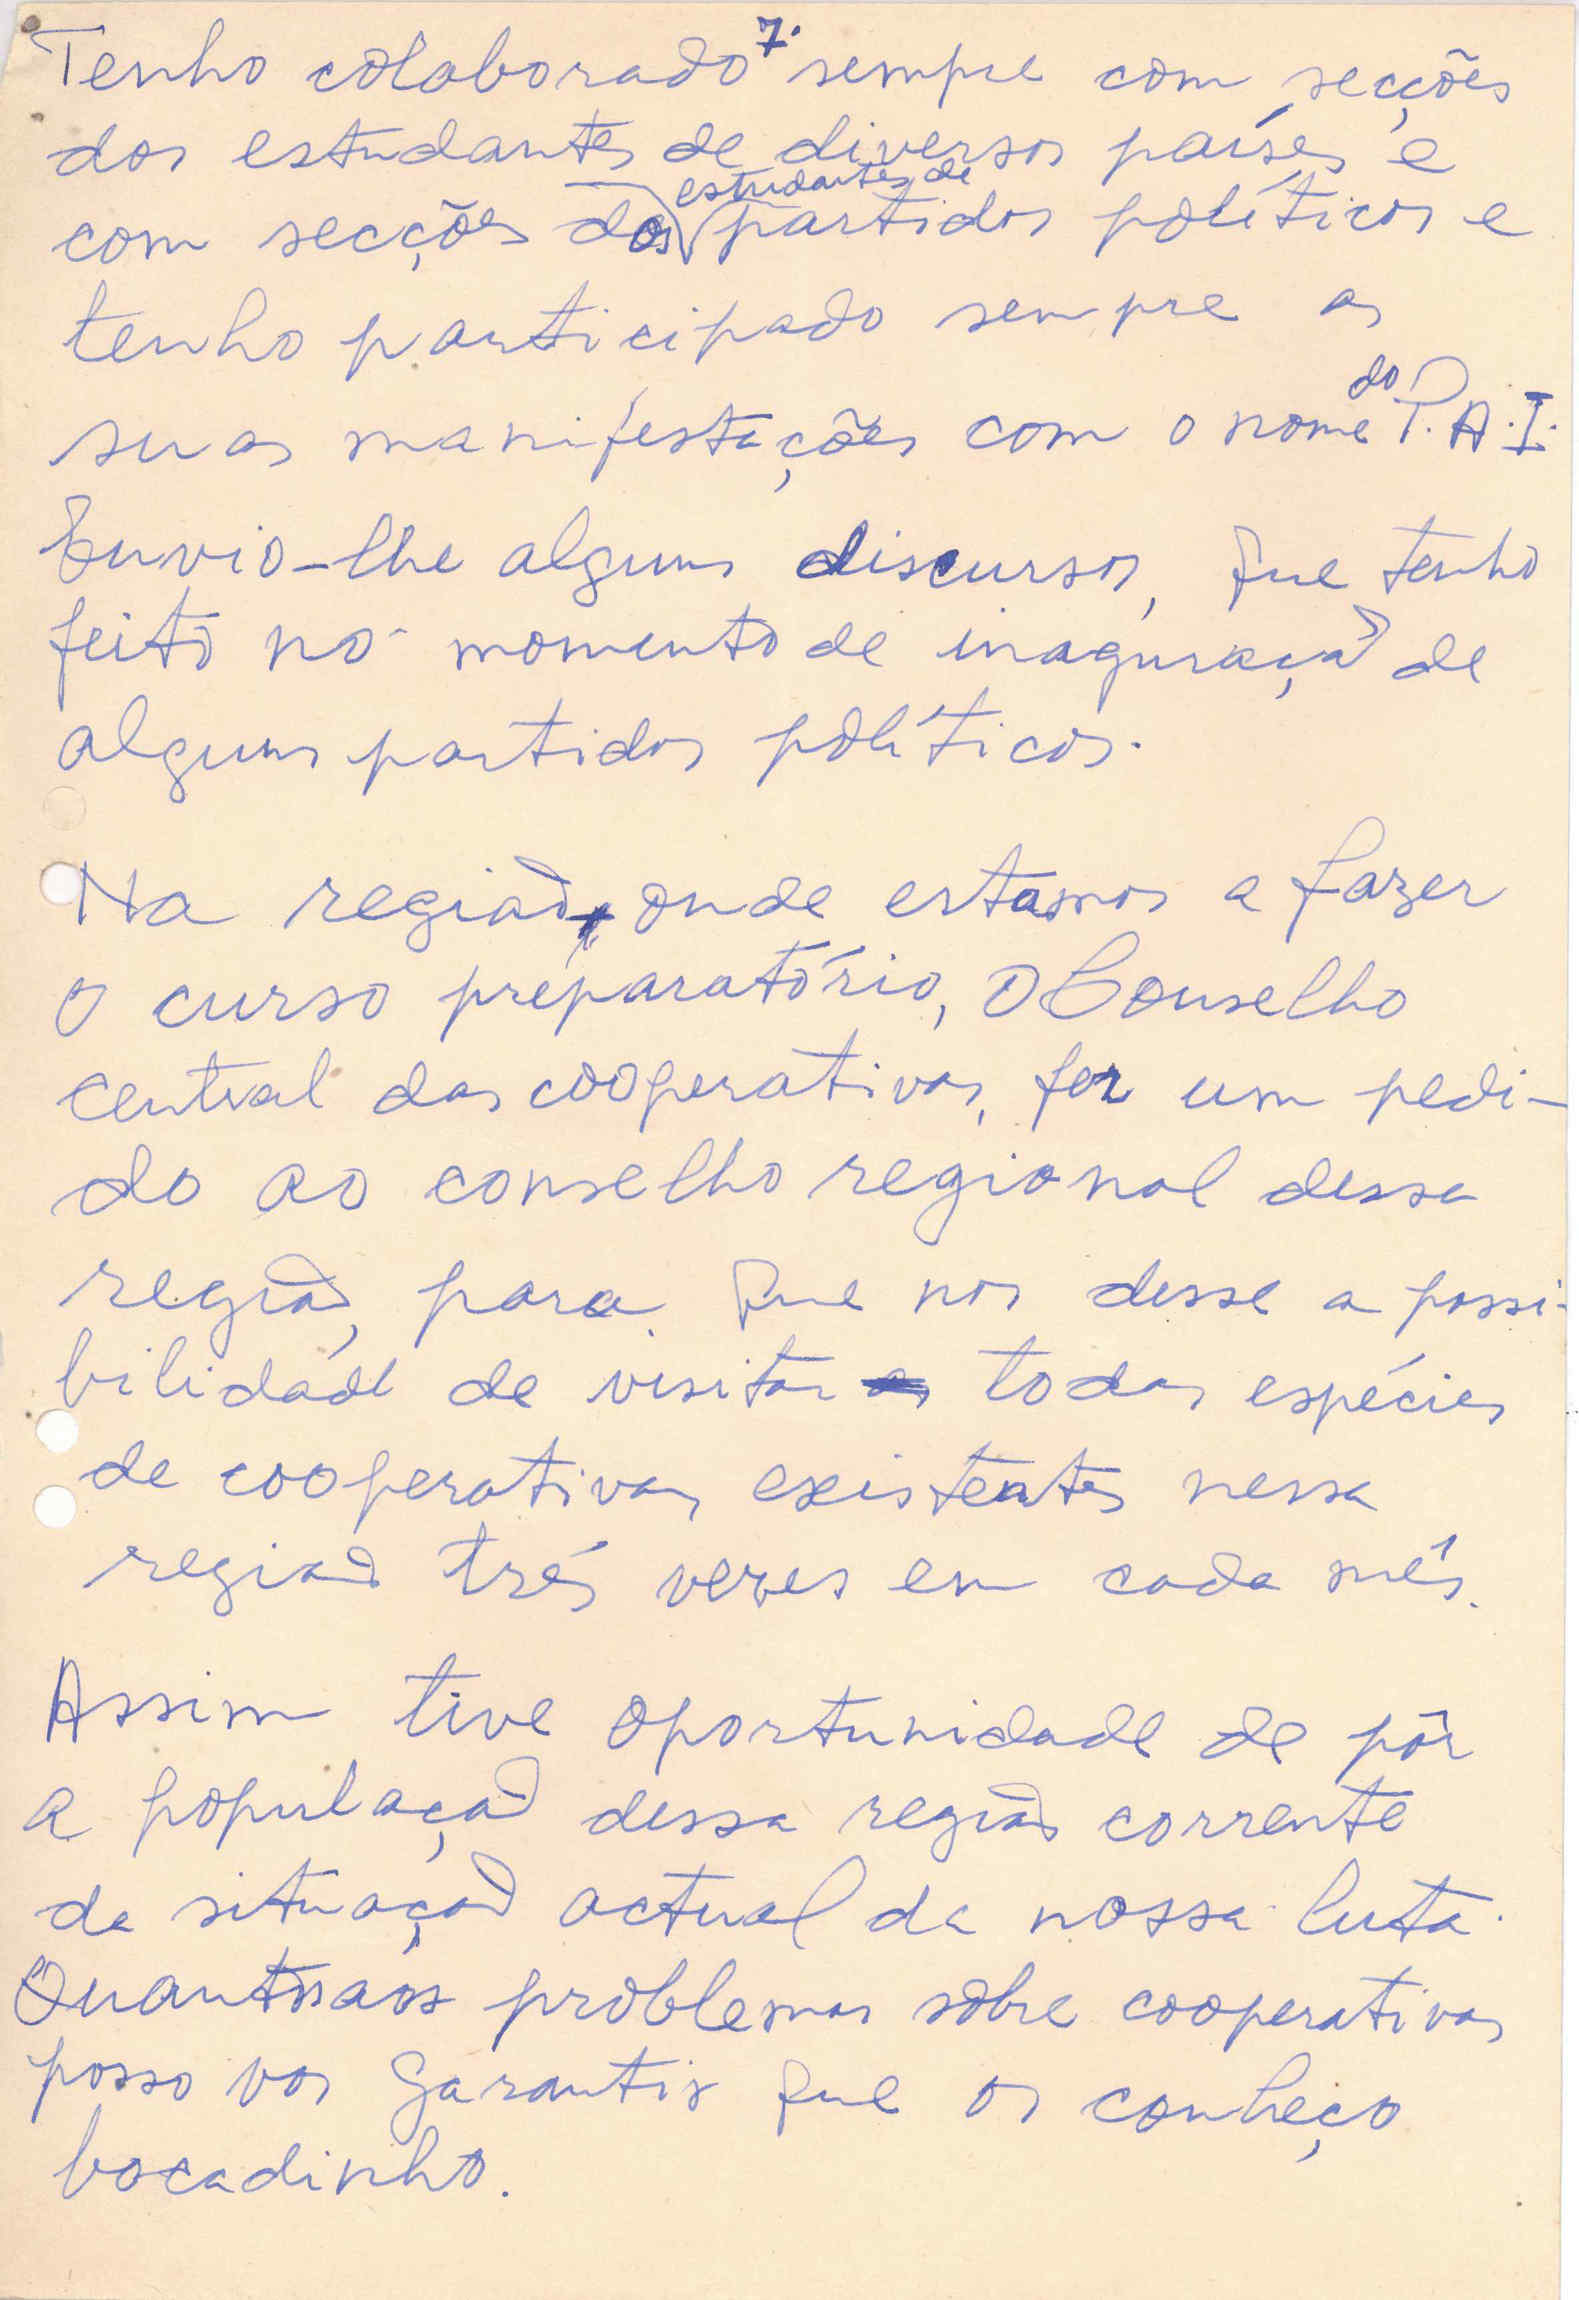 7.
Tenho colaborado sempre com secções
dos estudantes de diversos países e
estudantes de
com secções dos partidos políticos e
tenho participado sempre as
suas manifestações com o nome do P.A.I.
Envio-lhe alguns discursos, que tenho
feito no momento de inaguração de
alguns partidos políticos.
Na região, onde estamos a fazer
o curso preparatório, o Conselho
central das cooperativas, fez um pedi-
do ao conselho regional dessa
região, para que nos desse a possi-
bilidade de visitar todas espécies
de cooperativas existentes nessa
região três vezes em cada mês.
Assim tive oportunidade de pôr
a população dessa região corrente
da situação actual da nossa luta.
Quanto aos problemas sôbre cooperativas
posso vos garantir que os conheço
bocadinho.